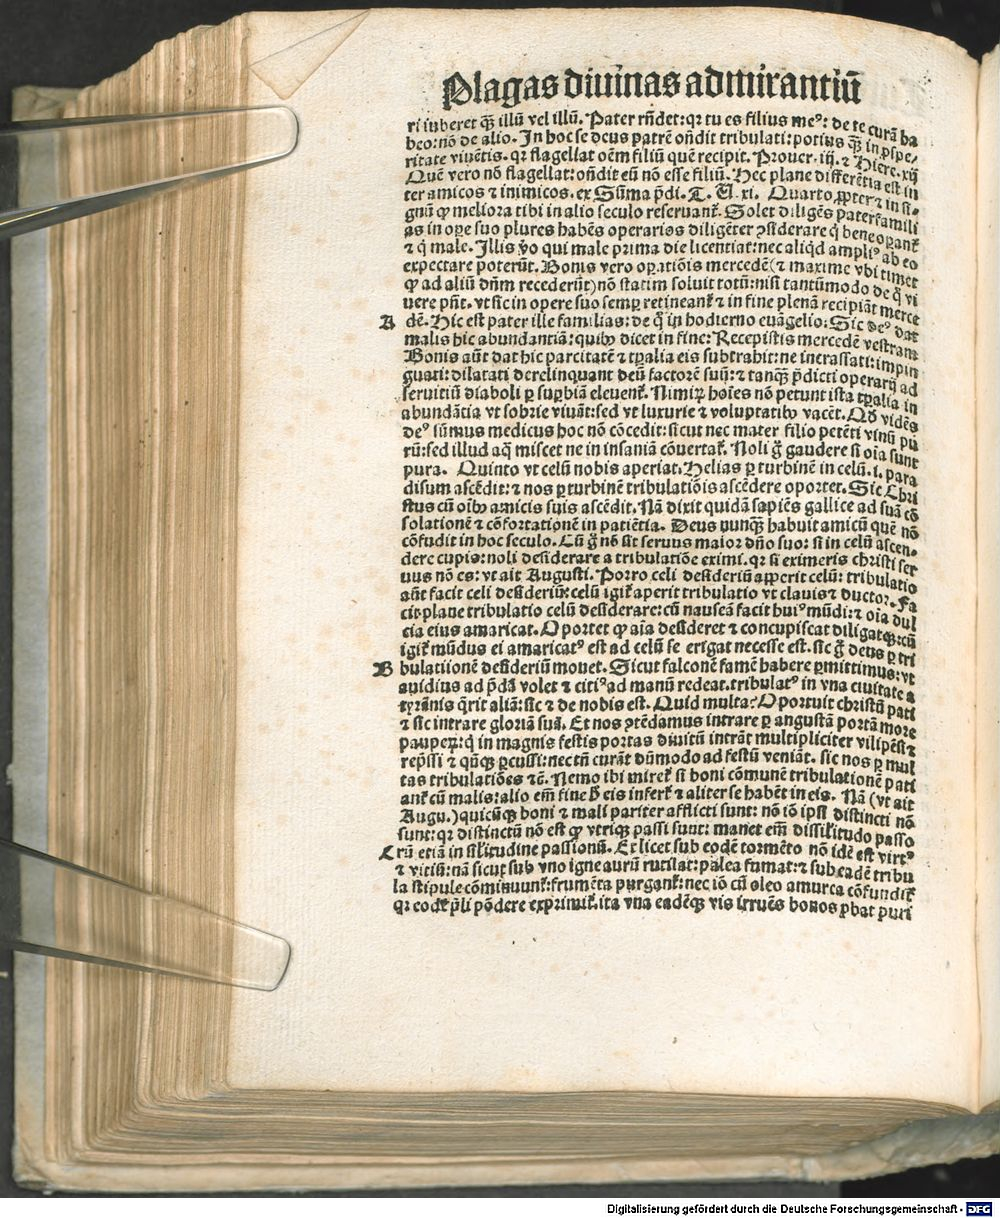 Plagas diuinas admirantiū
ri iuberet qꝫ illū vel illū. Pater rn̄det: qꝛ tu es filius meꝰ: de te curā ha
beo: nō de alio. In hoc se deus patrē on̄dit tribulati: potius qꝫ in ꝓspe⸗
ritate viuētis. qꝛ flagellat oēm filiū quē recipit. Prouer. iij. ⁊ Hiere. xij
Quē vero nō flagellat: on̄dit eū nō esse filiū. Hec plane differētia est in
ter amicos ⁊ inimicos. ex Sūma p̄di. T. VI. xi. Quarto ꝓpter ⁊ in si⸗
gnū ꝙ meliora tibi in alio seculo reseruant᷑. Solet diligēs paterfamili
as in oꝑe suo plures habēs operarios diligēter ꝯsiderare q̇ bene oꝑant᷑
⁊ q̇ male. Illis ꝟo qui male prima die licentiat: nec aliqd ampliꝰ ab eo
expectare poterūt. Bonis vero oꝑatiōis mercedē (⁊ maxime vbi timet
ꝙ ad aliū dn̄m recederūt) nō statim soluit totū: nisi tantūmodo de q̇ vi
uere pn̄t. vt sic in opere suo semꝑ retineant᷑ ⁊ in fine plenā recipiāt merce
A dē. Hic est pater ille familias: de q̇ in hodierno euāgelio: Sic deꝰ dat
malis hic abundantiā: quibꝰ dicet in fine: Recepistis mercedē vestram
Bonis aūt dat hic parcitatē ⁊ tꝑalia eis subtrahit: ne incrassati: impin
guati: dilatati derelinquant deū factorē suū: ⁊ tanqꝫ p̄dicti operarij ad
seruitiū diaboli ꝑ suꝑbiā eleuent᷑. Nimiꝝ hoīes nō petunt ista tꝑalia in
abundātia vt sobrie viuāt: sed vt luxurie ⁊ voluptatibꝰ vacēt. Qd̄ vidēs
deꝰ sūmus medicus hoc nō cōcedit: sicut nec mater filio petēti vinū pu
rū: sed illud aq̄ miscet ne in insaniā cōuertat᷑. Noli g̊ gaudere si oīa sunt
pura. Quinto vt celū nobis aperiat. Helias ꝑ turbinē in celū. i. para
disum ascēdit: ⁊ nos ꝑ turbinē tribulatiōis ascēdere oportet. Sic Chri
stus cū oībꝰ amicis suis ascēdit. Nā dixit quidā sapiēs gallice ad suā cō
solationē ⁊ cōfortationē in patiētia. Deus nunqꝫ habuit amicū quē nō
cōfudit in hoc seculo. Cū g̊ nō sit seruus maior dn̄o suo: si in celū ascen⸗
dere cupis: noli desiderare a tribulatiōe eximi. qꝛ si eximeris christi ser
uus nō es: vt ait Augusti. Porro celi desideriū apperit celū: tribulatio
aūt facit celi desideriū: celū igit᷑ aperit tribulatio vt clauis ⁊ ductor. Fa
cit plane tribulatio celū desiderare: cū nauseā facit huiꝰ mūdi: ⁊ oīa dul
cia eius amaricat. Oportet ꝙ aīa desideret ⁊ concupiscat diligatqꝫ: cū
igit᷑ mūdus ei amaricatꝰ est ad celū se erigat necesse est. sic g̊ deus ꝑ tri
B bulatiionē desideriū mouet. Sicut falconē famē habere ꝑmittimus: vt
auidius ad p̄dā volet ⁊ citiꝰ ad manū redeat. tribulatꝰ in vna ciuitate a
tyrānis q̄rit aliā: sic ⁊ de nobis est. Quid multa? Oportuit christū pati
⁊ sic intrare gloriā suā. Et nos ꝯtēdamus intrare ꝑ angustā portā more
paupeꝝ: q̇ in magnis festis portas diuitū intrāt multipliciter vilipēsi ⁊
rep̄ssi ⁊ qn̄qꝫ ꝑcussi: nec tn̄ curāt dūmodo ad festū veniāt. sic nos ꝑ mul
tas tribulatiōes ⁊c̄. Nemo ibi miret᷑ si boni cōmunē tribulationē pati
ant᷑ cū malis: alio em̄ fine h̄ eis infert᷑ ⁊ aliter se habēt in eis. Nā (vt ait
Augu.) quicūqꝫ boni ⁊ mali pariter afflicti sunt: nō iō ipsi distincti nō
sunt: qꝛ distinctū nō est ꝙ vtriqꝫ passi sunt: manet em̄ dissil̄itudo passo
C rū etiā in sil̄itudine passionū. Et licet sub eodē tormēto nō idē est virtꝰ
⁊ vitiū: nā sicut sub vno igne aurū rutilat: palea fumat: ⁊ sub eadē tribu
la stipule cōminuunt᷑: frumēta purgant᷑: nec iō cū oleo amurca cōfundit᷑
qꝛ eodē p̄li pōdere exprimit᷑. ita vna eadēqꝫ vis irruēs bonos ꝓbat puri
Digitalisierung gefördert durch die Deutsche Forschungsgemeinschaft - DFG